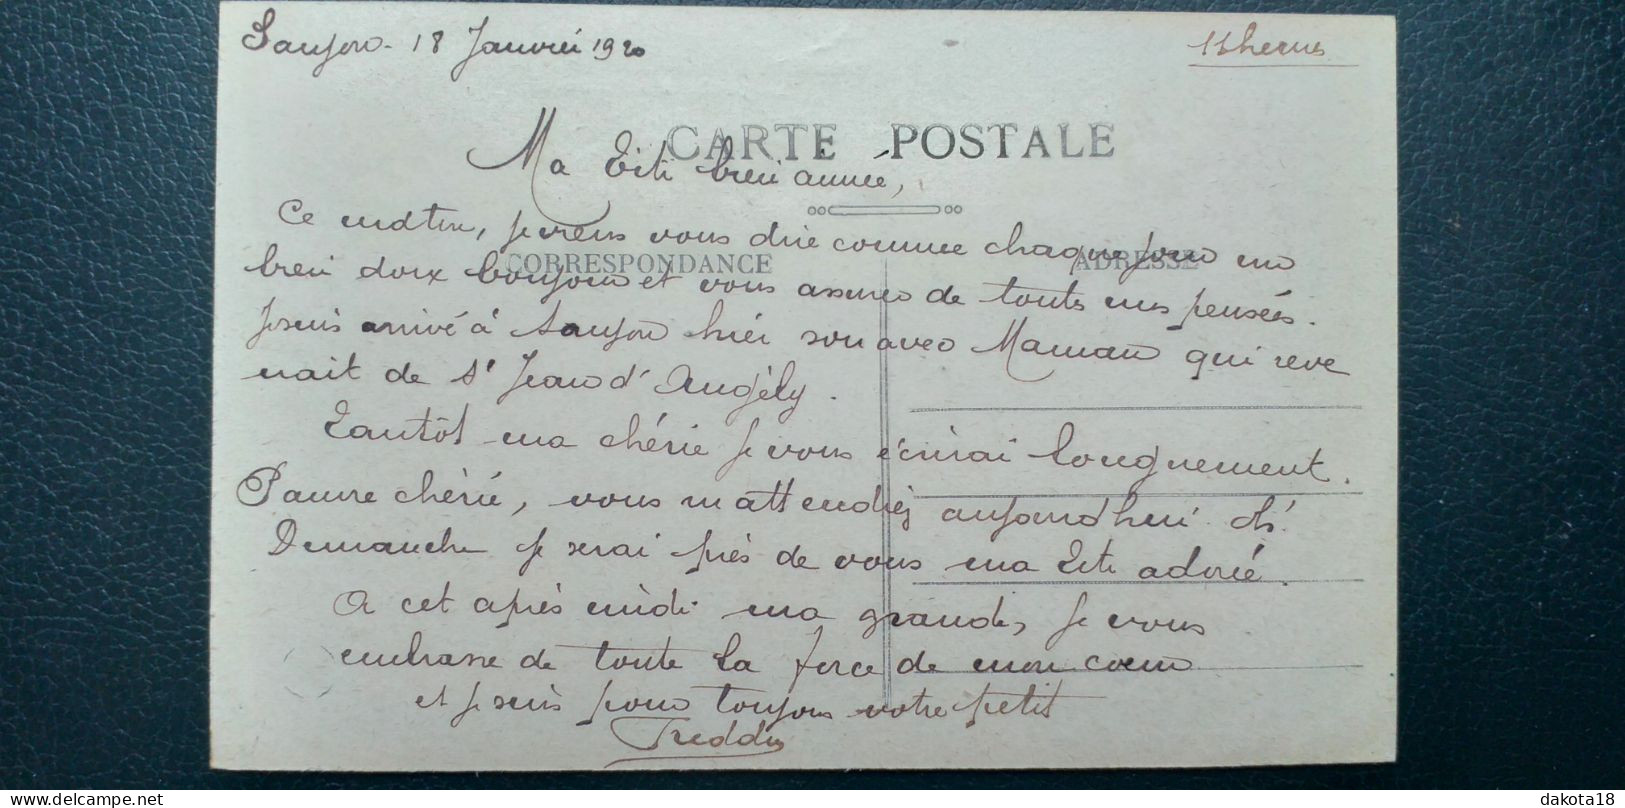 Saujon - 18 Janvier 1920
11 heures
CARTE POSTALE
Ma Titi bien aimée,
Ce matin, je viens vous dire comme chaque jour un
CORRESPONDANCE
ADRESSE
bien doux bonjour et vous assurer de toutes mes pensées.
Je suis arrivé à Saujon hier soir avec Maman qui reve
nait de St Jean d'Angély.
Tantôt ma chérie je vous écrirai longuement.
Pauvre chérie, vous m'attendiez aujourd'hui
Dimanche je serai près de vous ma Titi adorée.
A cet après midi ma grande, je vous
embrasse de toute la force de mon coeur
et je suis pour toujours votre petit
Freddy
dakota18